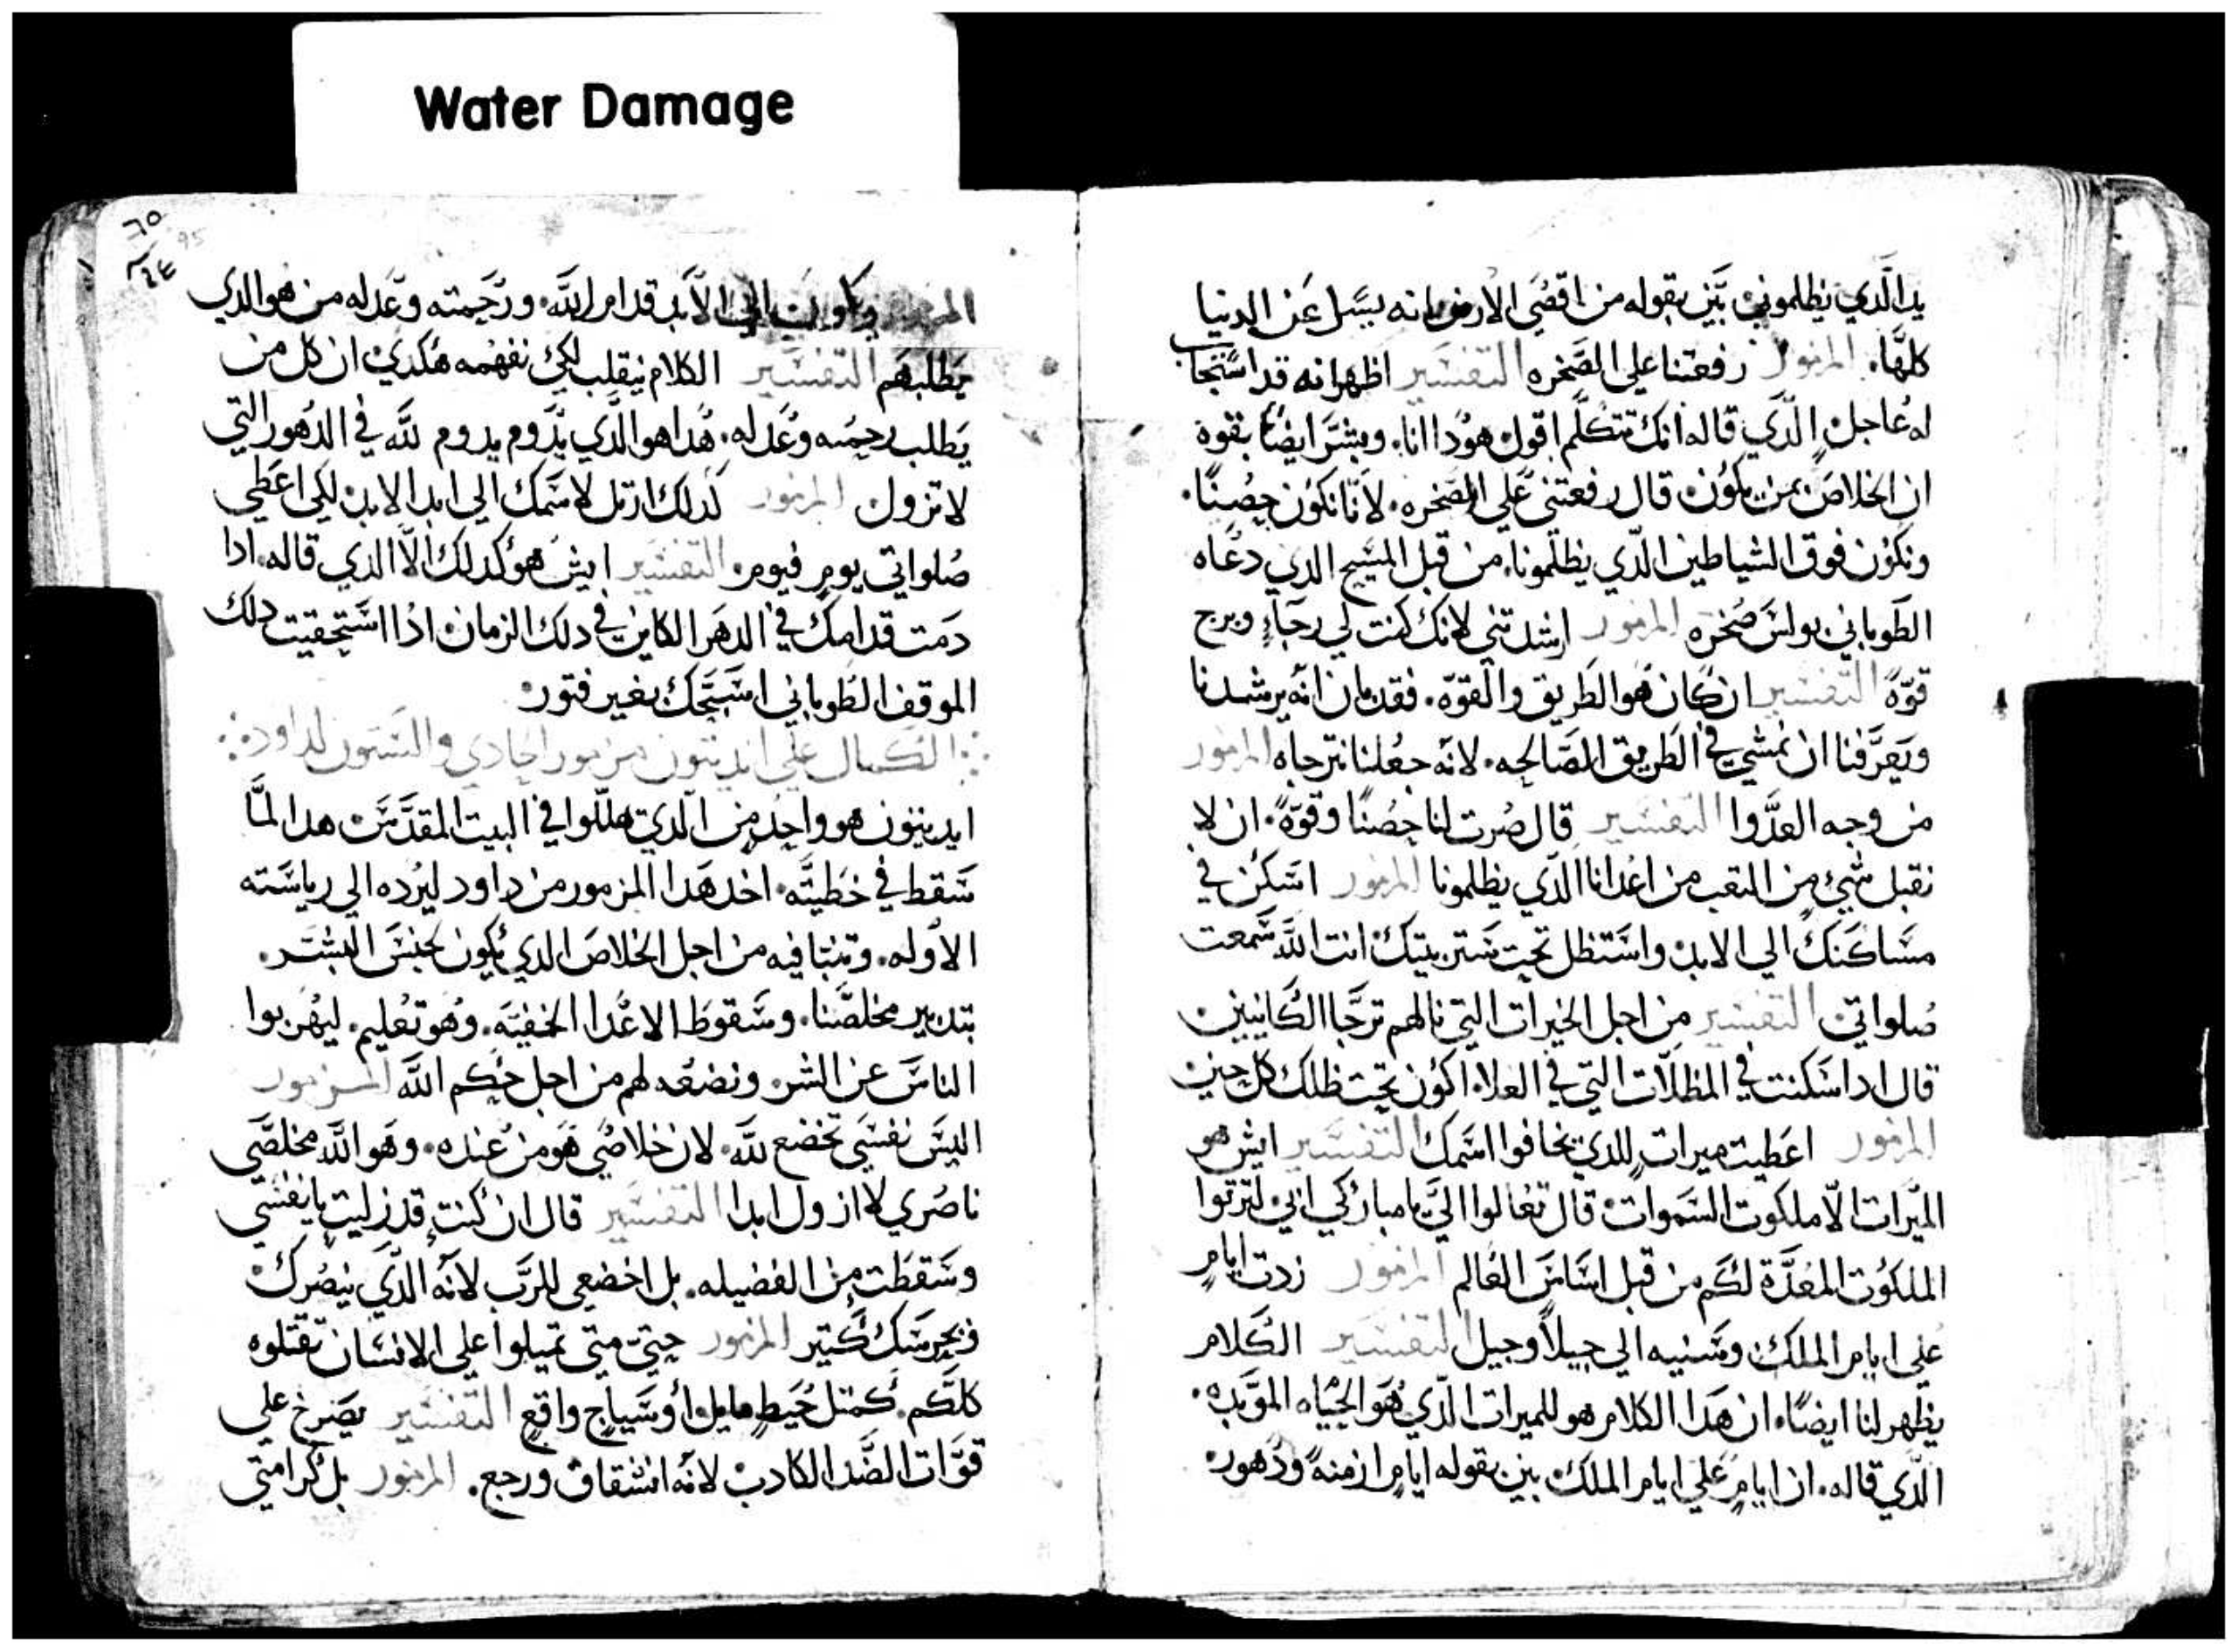 Water Damage
يدالّدي يظلموني بَيّن بقوله من اقصَي الارض انه يسَل عَن الدنيا
كلهّا. المزمور رفعتنا علي الصَخره التفسَير اظهر انه قد استجاب
له عاجل الّدي قاله انك تتكلّم اقول هودا انا. وبشرَ ايضًا بقوه
ان الخلاصَ بمن يكون قال رفعتني عَلي الصَخره. لانّا نكون حِصُنًا.
ونكون فوق الشياطين الدّي يظلّمونا. من قبل المسَيح الدي دعَاه
الطَوباني بولسَ صخره المزمور ارشدتني لانك كنت لي رجَاءٍ وبرج
قوّهً التفسَير ان كان هو الطَريق والقوّه. فقد بان انّه يرشدنا
ويَعرَّفنا ان نمشي في الطَريق الصَالحه. لانّه جعُلنا نترجاه المزمور
من وجه العدَّوا التفسَير قال صُرت لنا حِصُنًا وقوّهً. ان لا
نقبل شيءٍ من التعب من اعُدانا الدّي يظلمونا المزمور اسَكُن في
مسَاكنَكَ الي الابد واسَتظل تحت سَتر بيتك انت اللّه سَمعت
صُلواتي التفسَير من اجل الخيرات التي نالهم ترجَّا الكَاينين
قال ادا سَكنت في المظلاّت التي في العلاء اكون تحت ظلك كل حين
المزمور اعَطيت ميرات للدي يخافوا اسَمك التفسَير ايش هو
الميّرات الاّ ملكوت السَموات قال تعُالوا اليَّ يا مباركي ابي لترتوا
الملكوُت المعُدَّة لكَم من قبل اسَاسَ العُالم المزمور زدت ايامٍ
عَلي ايام الملك وسَنيه الي جيلاً وجيل التفسَير الكَلام
يظهر لنا ايضًا. ان هَدا الكلام هو للميرات الدّي هُوَ الحَيَاه الموَّبده.
الدّي قاله. ان ايامٍ عَلي ايام الملك بين بقوله ايامٍ ازمنهً ودُهور
٦٥
95
المزمور ويكون الي الاَبد قدام اللَّه. ورَحمته وعَدله من هو الدي
يَطلبهَم التفسَير الكلام ينقلب لكي نفهمه هَكدي ان كل من
يَطلب رحمته وعَدله. هَدا هو الدَّي يدُوم يدوم للَّه في الدهُور التي
لا تزول المزمور كدلك ارتل لاسَمك الي ابد الابد لكي اعَطي
صُلواتي يومٍ فيوم. التفسَير ايش هو كدلك الاّ الدي قاله. ادا
دمَت قدامك في الدهَر الكاين في دلك الزمان ادُا اسَتحقيت دلك
الموقف الطوباني اسَبّحَك بغير فتور
الكَمال علي ايديتون مزمور الحادي والسَتون لداود
ايديتون هو واحِدٍ من الّدي هللّوا في البيت المقدَّسَ هدا لمَّا
سَقط في خطَيتَّه. اخد هَدا المزمور من داود ليرُده الي رياسَته
الاوُله. وتنبّا فيه من اجل الخلاصَ الدي يكون لجنسَ البشَر.
بتدبير مخلصَّنا. وسَقوطَ الاعُدا الخفيّهَ. وهُو تعُليم. ليهُربوا
الناسَ عن الشر. ونضعُه لهم من اجل حُكم اللَّه المزمور
اليسَ نفسَي تخضع للَّه. لان خلاصُي هَو من عنده. وهَو اللَّه مخلصَّي
ناصُري لا ازول ابدا التفسَير قال ان كنتِ قد زليتِ يا نفسَي
وسَقطَتِ من الفضيله. بل اخضعي للربَّ لانّه الدّي ينصُرك
المزمور حتيّ متي تميلوا علي الانسَان تقتلوه
كلكّم. كمتل حَيَطٍ مايل. أوسَياجٍ واقعٍ التفسَير يصَرخ علي
قوّات الضَّد الكادب لانّه انشقاق ورجع. المزمور بل كرامتي